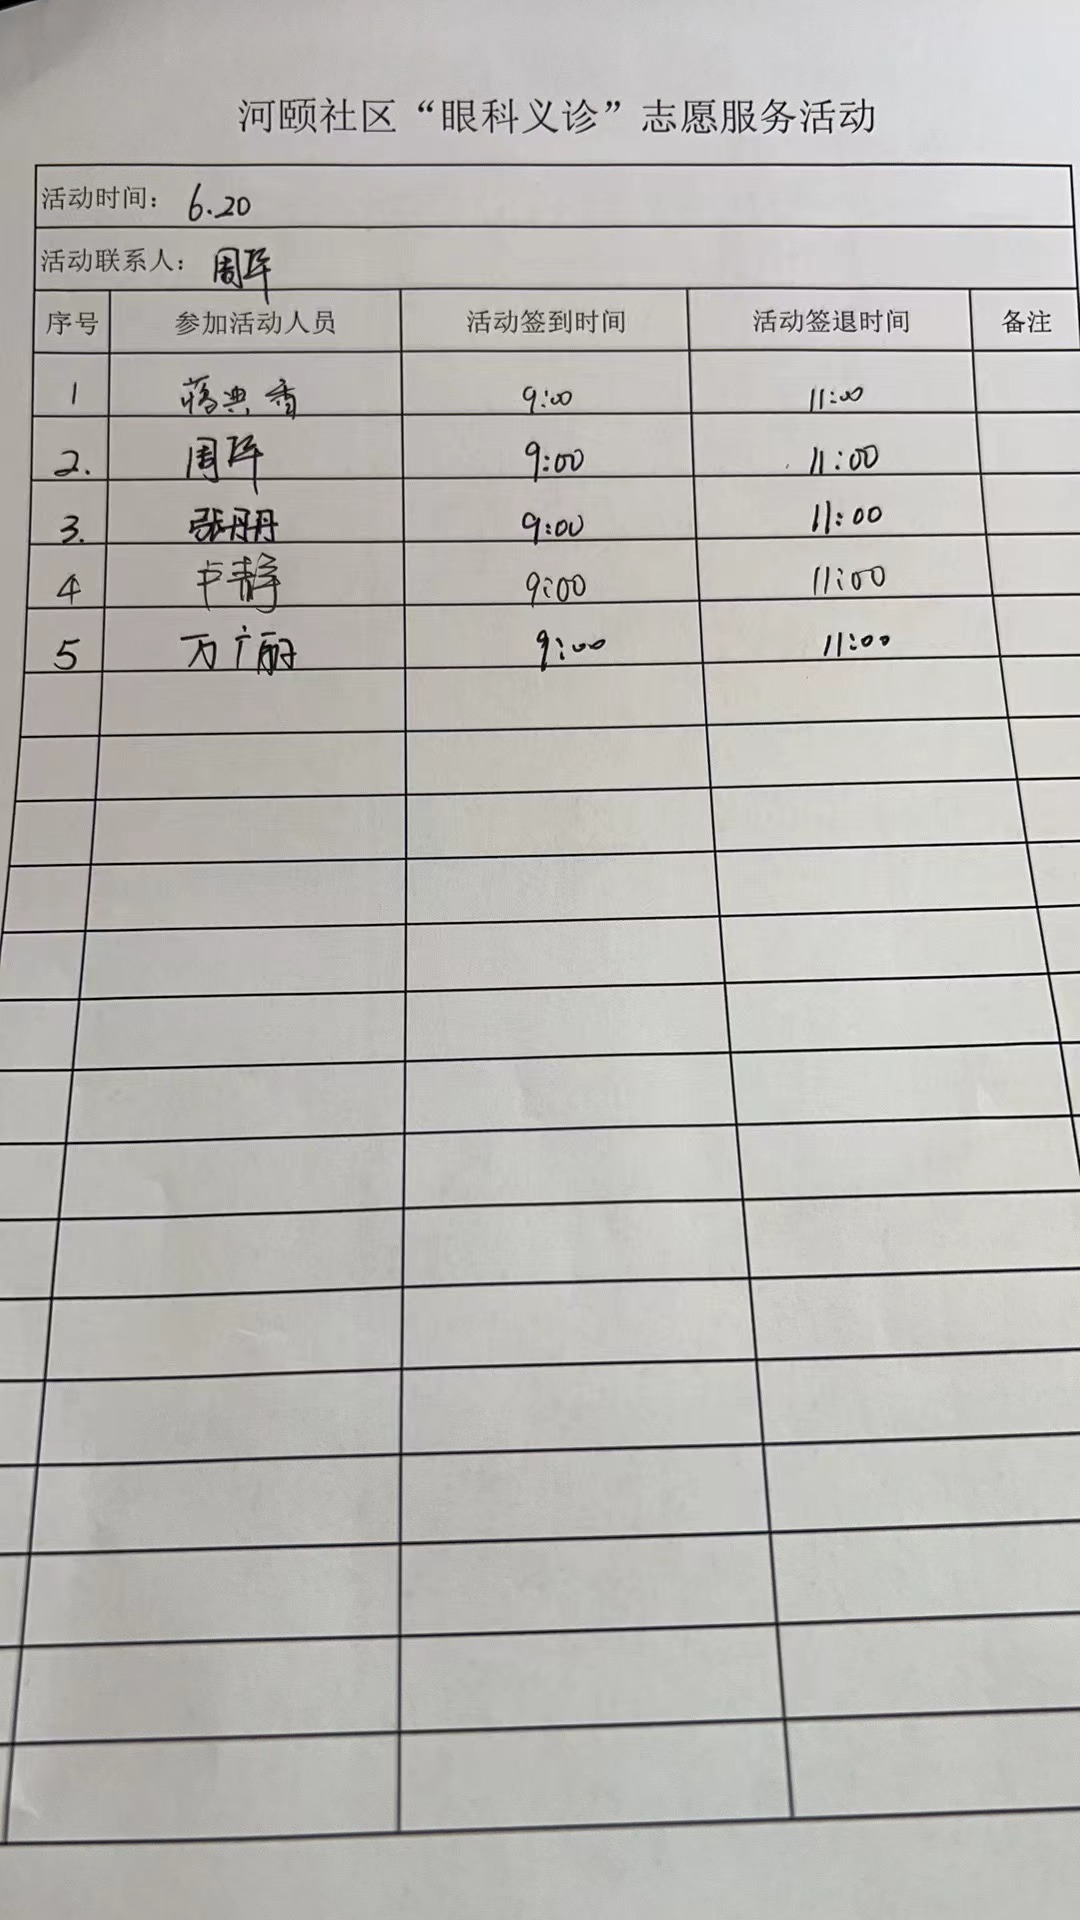 河颐社区“眼科义诊”志愿服务活动
活动时间： 6.20
活动联系人： 周
序号 参加活动人员 活动签到时间 活动签退时间 备注
1 蒋典香 9:00 11:00
2. 周 9:00 11:00
3. 张丹丹 9:00 11:00
4 卢静 9:00 11:00
5 万广丽 9:00 11:00